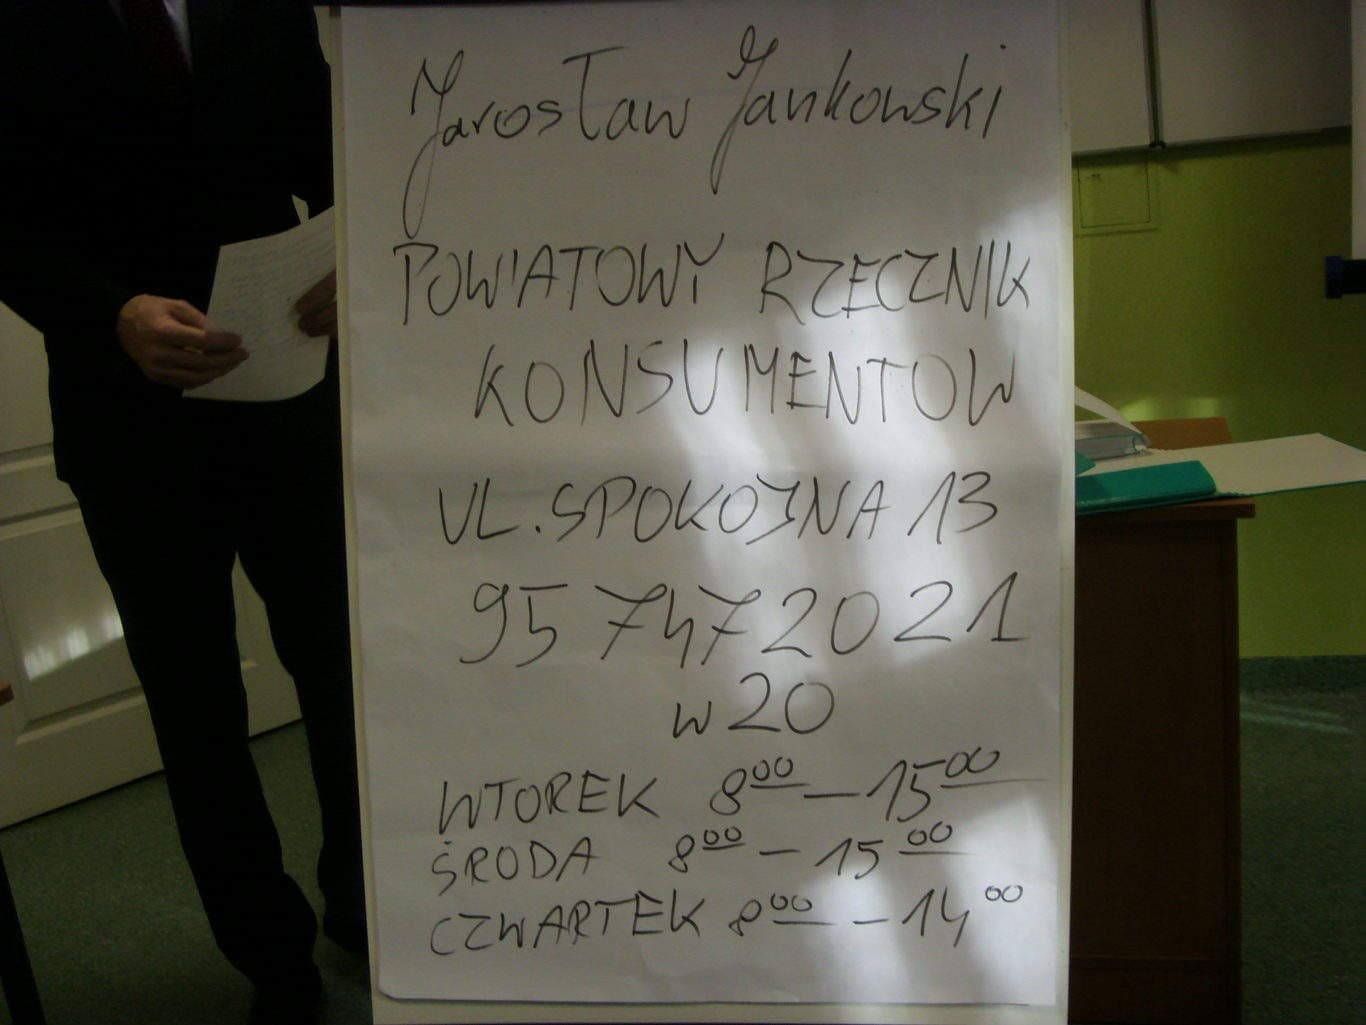 Jarosław Jankowski
POWIATOWY RZECZNIK
KONSUMENTOW
UL. SPOKOJNA 13
95 7472021
w 20
WTOREK 8⁰⁰ – 15⁰⁰
ŚRODA 8⁰⁰ – 15⁰⁰
CZWARTEK 8⁰⁰ – 14⁰⁰